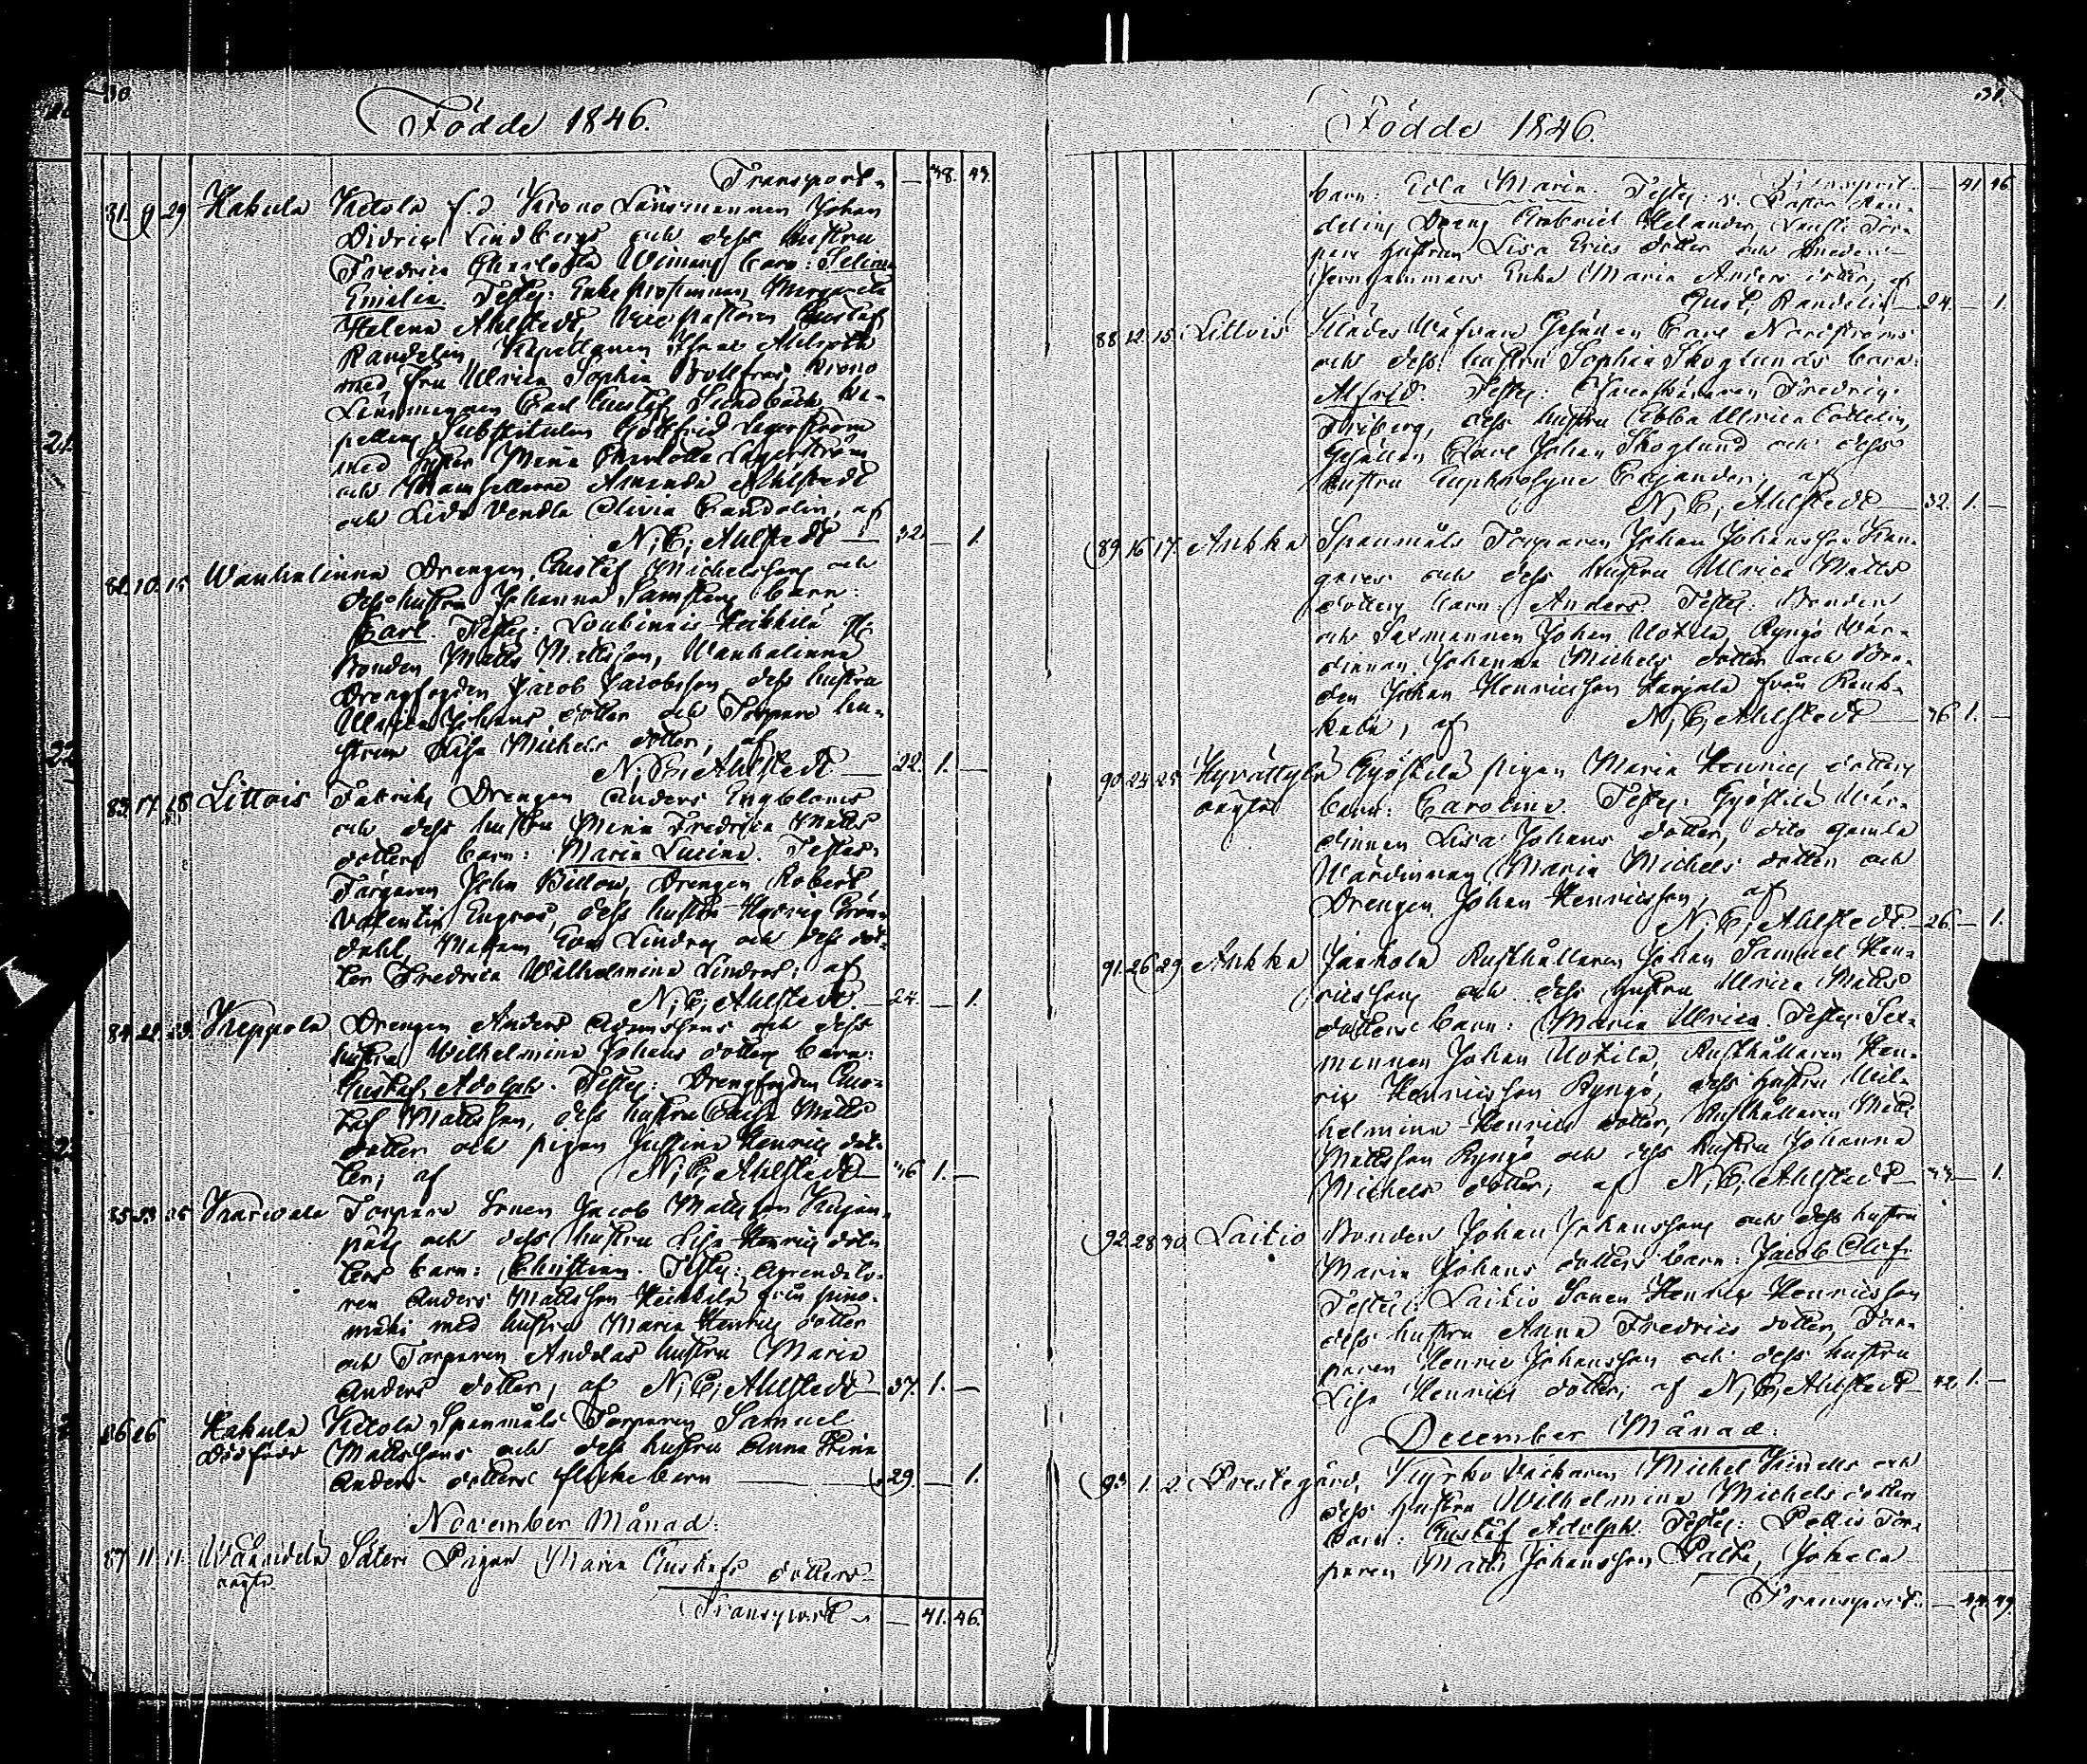 30.
Födde 1846.
Transport. — 38. 43.
81. 9 29 Hakula Ketola f. d. Krono Länsmannen Johan
Didrik Lindbergs och dess hustru
Fredrica Charlotta Wimans barn: Selma
Emilia. Testes: Enke Margareta
Helena Ahlstedt, Vice Pastoren Gustaf
Randelin, Kapellanen Ahlstedt
med Fru Ulrica Sophia Krono
Länsmannen Carl Gustaf Sundbäck, Ka-
pellans Substituten Gottfrid Lagerström
med Syster Mina Charlotta Lagerström
och Mamsellerne Amanda Ahlstedt
och Lida Vendla Olivia Randelin, af
N: E; Ahlstedt — 32. — 1.
82. 10. 15. Wanhalinna Drengen Gustaf Michelssons och
dess hustru Johanna barn:
Carl. Testes: Heikkilä
Bonden Matts Mattsson, Wanhalinna
Drengfogden Jacob Jacobsson, dess hustru
Ulrica Johans dotter och Torpare hu-
strun Lisa Michels dotter; af
N: E; Ahlstedt — 22. 1. —
83. 17. 18 Littois Fabriks Drengen Anders Engbloms
och dess hustru Mina Fredrica Matts
dotters barn: Maria Lucina. Testes:
Färgaren John Billow, Drengen Robert
Valentin Engros, dess hustru Hedvig Grön-
dahl, Madam Eva Lindros och dess dot-
ter Fredrica Wilhelmina Lindros; af
N: E; Ahlstedt. — 24. — 1.
84. 22. 23. Keppola Drengen Anders Adamssons och dess
hustru Wilhelmina Johans dotters barn:
Gustaf Adolph. Testes: Drengfogden Gus-
taf Mattsson, dess hustru Caisa Matts
dotter och pigan Justina Henrics dot-
ter; af N: E; Ahlstedt — 36 1. —
85. 23. 25 Karwala Torpare Sonen Jacob Mattsson Kujan-
pääs och dess hustru Lisa Henrics dot-
ters barn: Christian. Testes: Arendato-
ren Anders Mattsson Heikkilä från
mäki med hustru Maria Henrics dotter
och Torparen Anddas hustru Maria
Anders dotter, af N: E; Ahlstedt — 37. 1. —
86 26 Hakula Ketola Spanmåls Torparen Samuel
Dödfödd Mattssons och dess hustru Anna Stina
Anders dotters flickebarn — 29. — 1.
November Månad.
87. 11. 11. Säteri Pigan Maria Gustafs dotters
oägta
Transport — 41. 46.
31.
Födde 1846.
Transport. — 41. 46
barn: Eola Maria. Testes: v. Pastor Ran-
delin, Dreng Gabriel Helander, Tor-
pare hustrun Lisa Erics dotter och
Enka Maria Anders dotter, af
Gust. Randelin — 24. — 1.
88 12. 15. Littois Klädes Wäfvare Gesällen Carl Nordströms
och dess hustru Sophia Skoglunds barn:
Alfred. Testes: Fredric
Friberg, dess hustru Ebba Ulrica
Gesällen Carl Johan Skoglund och dess
hustru Euphrosyne Cajander; af
N: E; Ahlstedt — 32. 1. —
89 16 17. Aukka Spanmåls Torparen Johan Johansson
och dess hustru Ulrica Matts
dotters barn: Anders. Testes: Bonden
och Sexmannen Johan Uotila, Ryngö Wär-
dinnan Johanna Michels dotter och Bon-
den Johan Henricsson Karjala från
N: E; Ahlstedt — 36 1. —
90. 24. 25 Hyvättylä Eyöstilä pigan Maria Henrics dotters
oägta barn: Carolina. Testes: Eyöstilä Wär-
dinnan Lisa Johans dotter, dito gamla
Wärdinnan Maria Michels dotter och
Drengen Johan Henricsson; af
N: E; Ahlstedt. — 26. — 1.
91. 26 29. Aukka Jaakola Rusthållaren Johan Samuel Hen-
ricssons och dess hustru Ulrica Matts
dotters barn: Maria Ulrica. Testes: Sex-
mannen Johan Uotila, Rusthållaren Hen-
ric Henricsson Ryngö, dess hustru Wil-
helmina Henrics dotter, Rusthållaren Matts
Mattsson Ryngö och dess hustru Johanna
Michels dotter; af N: E; Ahlstedt — 33. — 1.
92. 28 30. Laitio Bonden Johan Johanssons och dess hustru
Maria Johans dotters barn: Jacob Olof.
Testes: Laitio Sonen Henric Henricsson
dess hustru Anna Fredrics dotter, Tor-
paren Henric Johansson och dess hustru
Lisa Henrics dotter; af N: E; Ahlstedt — 42. 1. —
December Månad.
93. 1. 2. Prestegård, Kyrko Michel och
dess hustru Wilhelmina Michels dotters
barn: Gustaf Adolph. Testes: Tor-
paren Matts Johansson Palta, Johala
Transport. — 44. 49.